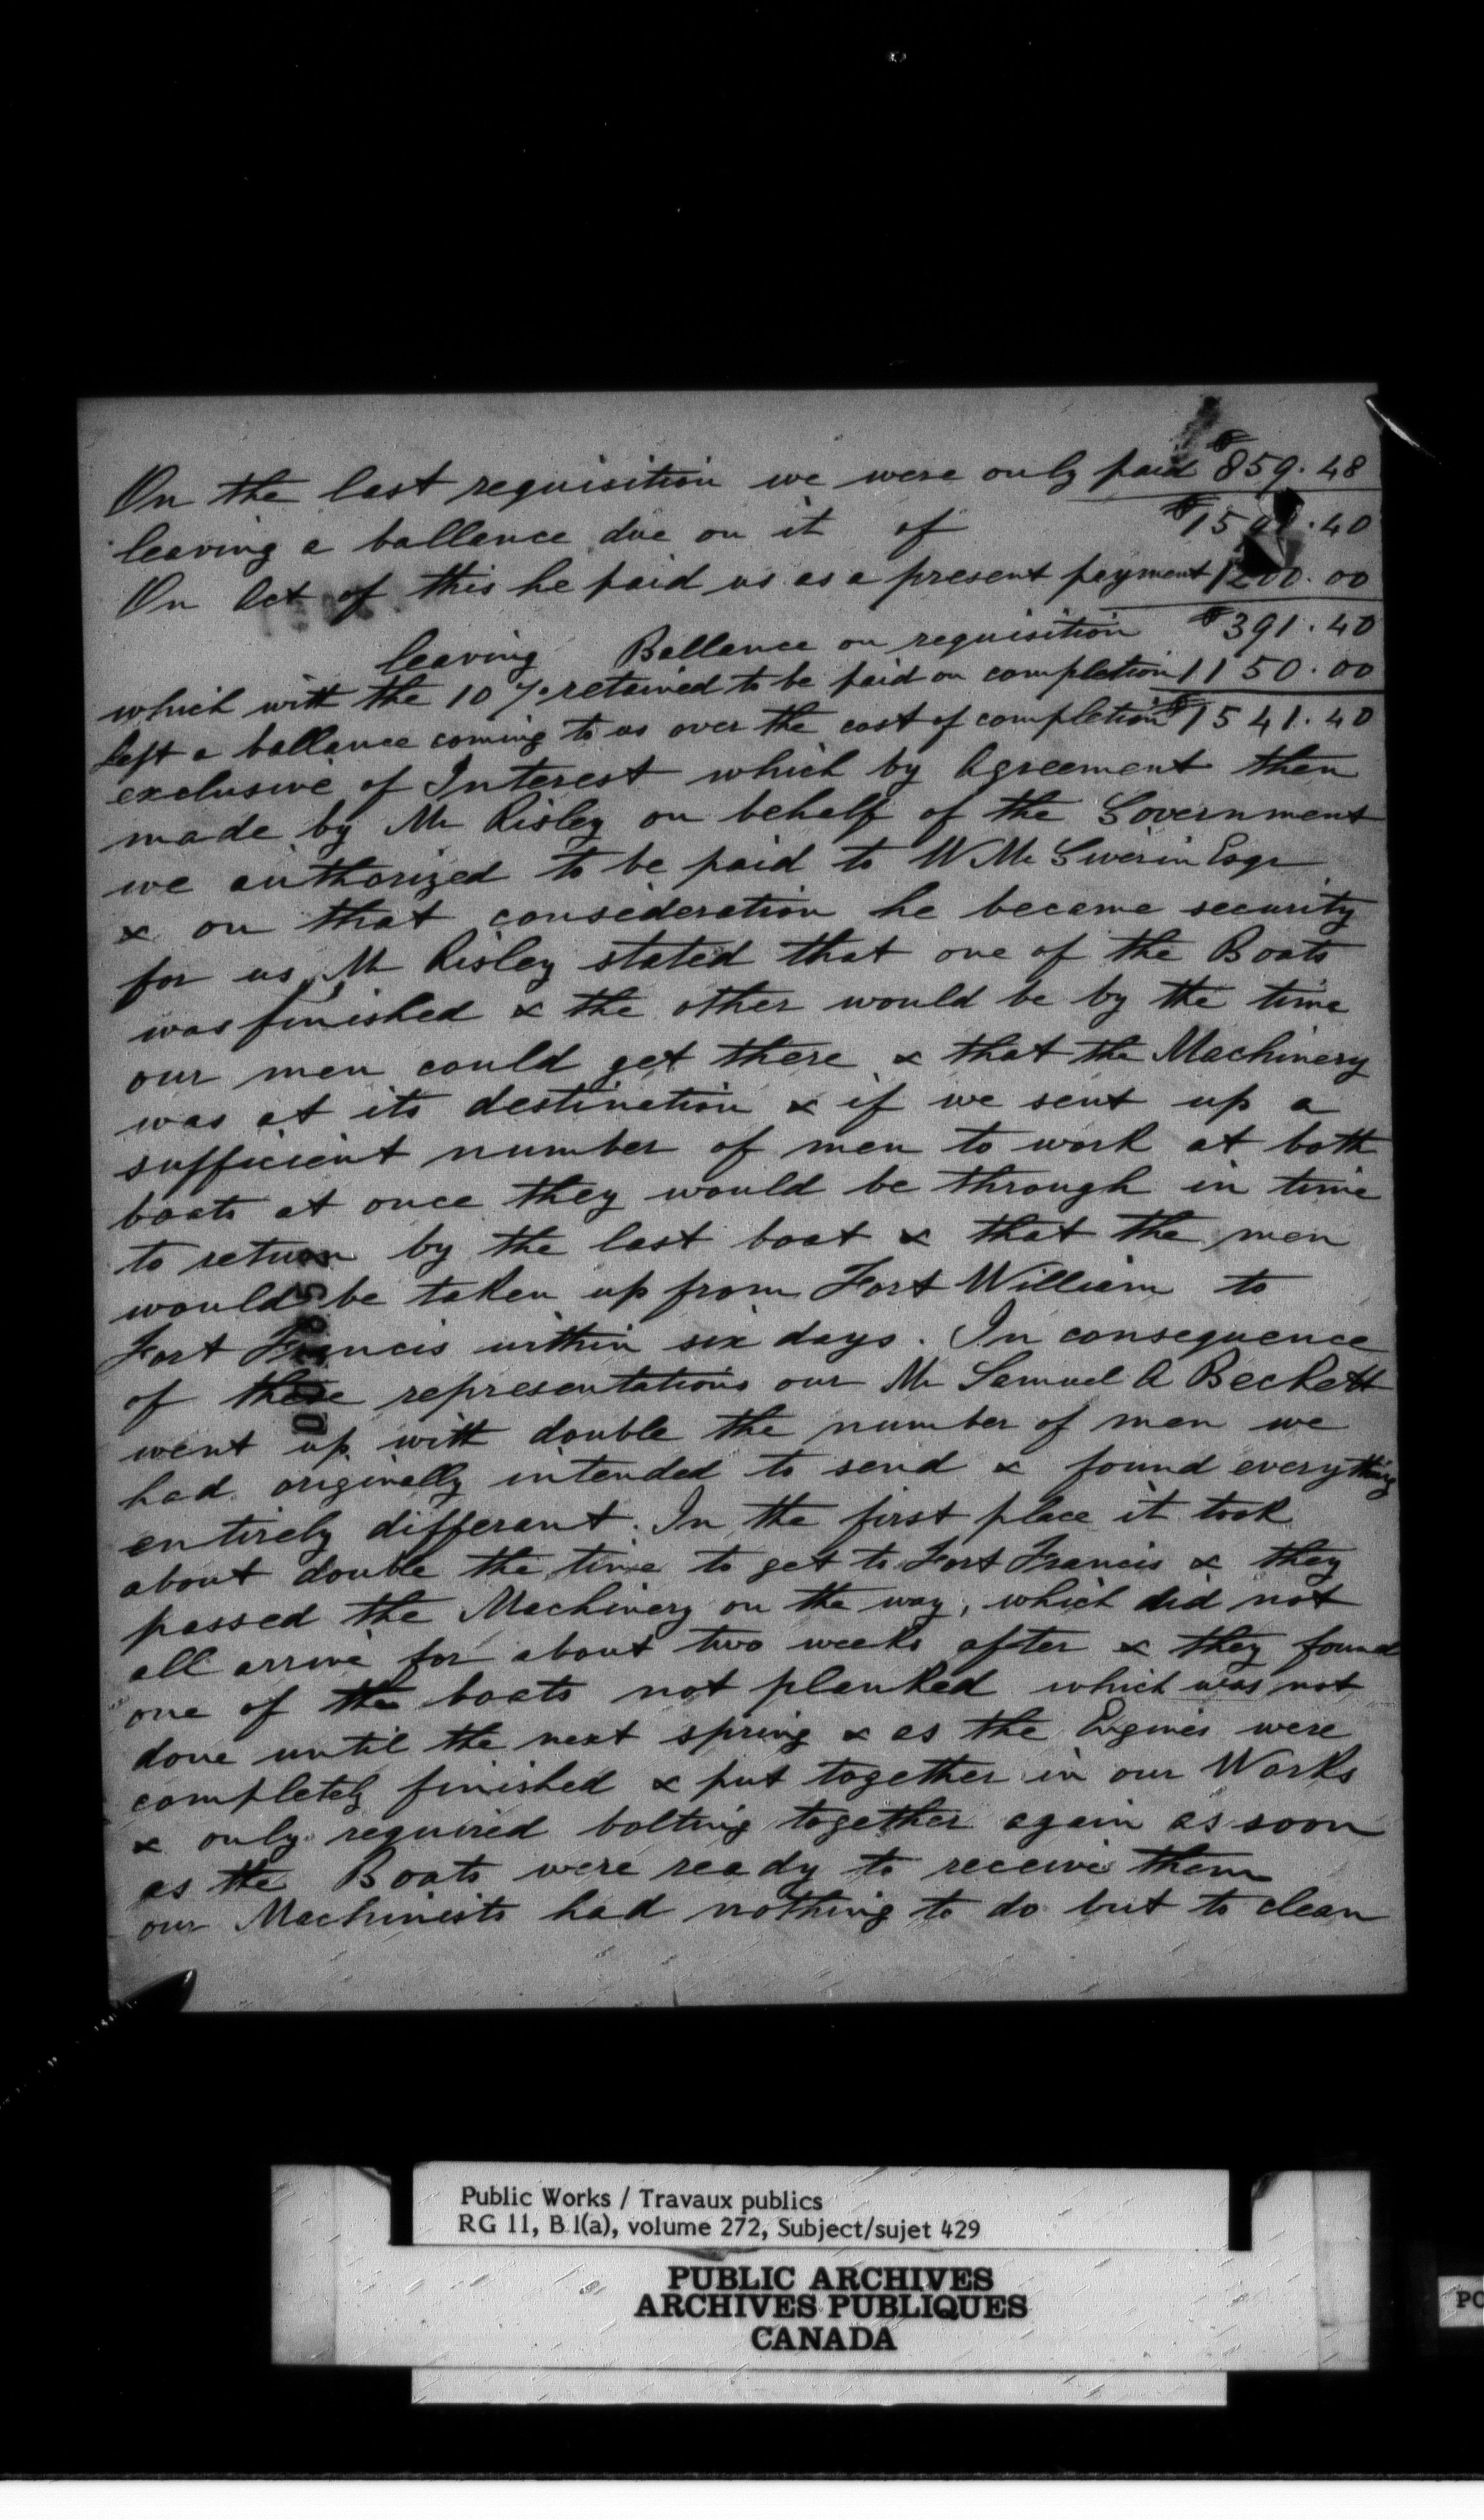 On the last requisition we were only paid $859.48
leaving a ballance due on it of $1591.40
On Act of this he paid us as a present payment 1200.00
leaving Ballance on requisition $391.40
which with the 10 % retained to be paid on completion 1150.00
left a ballance coming to us over the cost of completion $1541.40
exclusive of Interest which by Agreement then
made by Mr Risley on behalf of the Government
we authorized to be paid to W Mc Giverin Esqr
& on that consideration he became security
for us, Mr Risley stated that one of the Boats
was finished & the other would be by the time
our men could get there & that the Machinery
was at its destination & if we sent up a
sufficient number of men to work at both
boats at once they would be through in time
to return by the last boat & that the men
would be taken up from Fort William to
Fort Francis within six days. In consequence
of these representations our Mr Samuel A Beckett
went up with double the number of men we
had originally intended to send & found everything
entirely different. In the first place it took
about double the time to get to Fort Francis & they
passed the Machinery on the way, which did not
all arrive for about two weeks after & they found
one of the boats not planked which was not
done until the next spring & as the Engines were
completely finished & put together in our Works
& only required bolting together again as soon
as the Boats were ready to receive them
our Machinists had nothing to do but to clean
Public Works / Travaux publics
RG 11, B 1(a), volume 272, Subject/sujet 429
PUBLIC ARCHIVES
ARCHIVES PUBLIQUES
CANADA